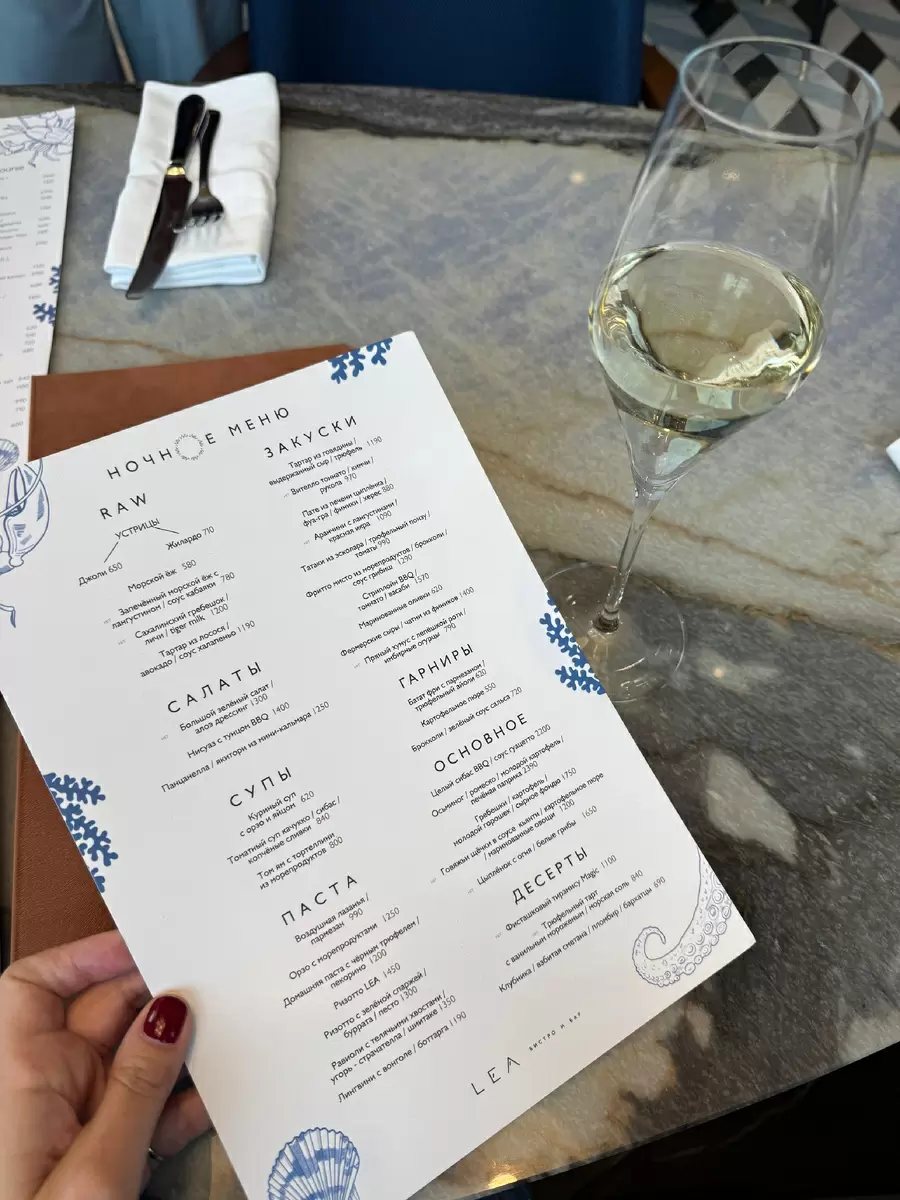 НОЧНОЕ МЕНЮ
RAW
УСТРИЦЫ
Джоли 650
Жилардо 710
Морской ёж 580
Запечённый морской ёж с
лангустином / соус кабаяки 780
Сахалинский гребешок /
личи / tiger milk 1200
Тартар из лосося /
авокадо / соус халапеньо 1190
САЛАТЫ
Большой зелёный салат /
алоэ дрессинг 1300
Нисуаз с тунцом BBQ 1400
Панцанелла / якитори из мини-кальмара 1250
СУПЫ
Куриный суп
с орзо и яйцом 620
Томатный суп качукко / сибас /
копчёные сливки 840
Том ям с тортеллини
из морепродуктов 800
ПАСТА
Воздушная лазанья /
пармезан 990
Орзо с морепродуктами 1250
Домашняя паста с чёрным трюфелем /
пекорино 1200
Ризотто LEA 1450
Ризотто с зелёной спаржей /
буррата / песто 1300
Равиоли с телячьими хвостами /
угорь - страчателла / шиитаке 1350
Лингвини с вонголе / боттарга 1190
ЗАКУСКИ
Тартар из говядины /
выдержанный сыр / трюфель 1190
Вителло тоннато / кимчи /
рукола 970
Пате из печени цыплёнка /
фуа-гра / финики / херес 880
Аранчини с лангустинами /
красная икра 1090
Татаки из эсколара / трюфельный понзу /
томаты 990
Фритто мисто из морепродуктов / брокколи /
соус грибиш 1290
Стриплойн BBQ /
тоннато / васаби 1570
Маринованные оливки 620
Фермерские сыры / чатни из фиников 1400
Пряный хумус с лепёшкой роти /
имбирные огурцы 790
ГАРНИРЫ
Батат фри с пармезаном /
трюфельный айоли 620
Картофельное пюре 550
Брокколи / зелёный соус сальса 720
ОСНОВНОЕ
Целый сибас BBQ / соус гуацетто 2200
Осьминог / ромеско / молодой картофель /
печёная паприка 2390
Гребешки / картофель /
молодой горошек / сырное фондю 1750
Говяжьи щёчки в соусе кьянти / картофельное пюре
/ маринованные овощи 1200
Цыплёнок с огня / белые грибы 1650
ДЕСЕРТЫ
Фисташковый тирамису Magic 1100
Трюфельный тарт
с ванильным мороженым / морская соль 840
Клубника / взбитая сметана / пломбир / бархатцы 690
LEA БИСТРО И БАР